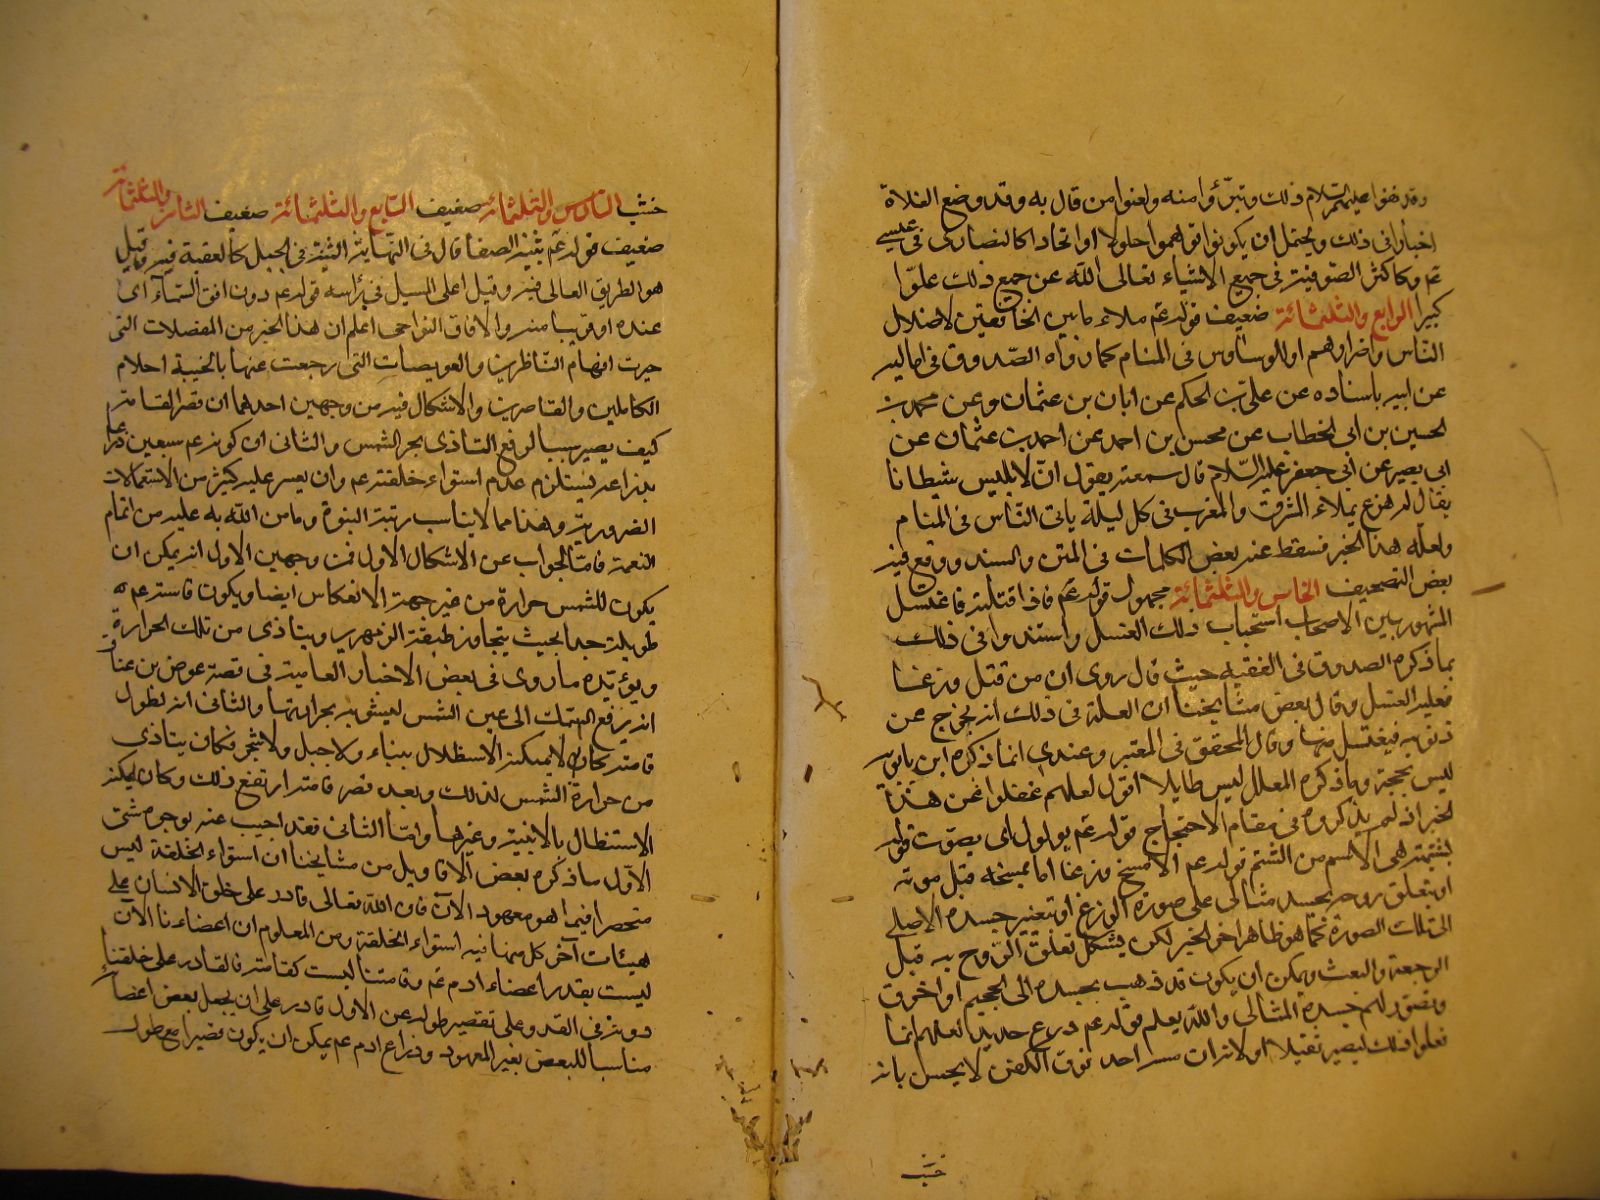 وقد نفوا عليهم السلام ذلك وتبرّؤا منه ولعنوا من قال به وقد وضع الغلاة
اخبارا فى ذلك ويحتمل ان يكونوا توهموا حلولا او اتحادا كالنصارى فى عيسى
عم وكاكثر الصّوفية فى جميع الاشياء تعالى اللّه عن جميع ذلك علوّا
كبيرا الرابع والثلثمائة ضعيف قوله عم ملاء ما بين الخافقين لاضلال
النّاس واضرارهم او للوساوس فى المنام كما رواه الصّدوق فى اماليه
عن ابيه باسناده عن على بن الحكم عن ابان بن عثمان وعن محمد بن
الحسين بن ابى الخطاب عن محسن بن احمد عن احمد بن عثمان عن
ابى بصير عن ابى جعفر عليه السّلام قال سمعته يقول انّ لابليس شيطانا
يقال له هزع يملاء المشرق والمغرب فى كل ليلة ياتى النّاس فى المنام
ولعلّه هذا الخبر فسقط عنه بعض الكلمات فى المتن والسند ووقع فيه
بعض التصحيف الخامس والثلثمائة مجهول قوله عم فاذا قتلته فاغتسل
المشهور بين الاصحاب استحباب ذلك الغسل واستندوا فى ذلك
بما ذكره الصدوق فى الفقيه حيث قال روى ان من قتل وزغا
فعليه الغسل وقال بعض مشايخنا ان العلة فى ذلك انه يخرج عن
ذنوبه فيغتسل منها وقال المحقق فى المعتبر وعندى انما ذكره ابن بابويه
ليس بحجة وما ذكره المعلل ليس طايلا اقول لعلهم غفلوا عن هذا
الخبر اذ لم يذكروه فى مقام الاحتجاج قوله عم يولول اى يصوّت قوله
بشتمه هى الاسم من الشتم قوله عم الا مسخ وزغا اما بمسخه قبل موته
او بتعلق روحه بجسد مثالى على صورة الوزغ او بتغيير جسده الاصلى
الى تلك الصورة كما هو ظاهر اخر الخبر لكن يشكل تعلق الرّوح به قبل
الرجعة والبعث ويمكن ان يكون قد ذهب بجسده الى الجحيم او احرق
وتصور لهم جسده المثالى واللّه يعلم قوله عم درع حديد لعلهم انما
فعلوا ذلك ليصير ثقيلا او لانه ان مسه احد فوق الكفن لا يحس بانه
خشب
خشب السّادس والثلثمائة ضعيف السّابع والثلثمائة ضعيف الثامن والثلثمائة
ضعيف قوله عم بثنية الصفا قال فى النهاية الثنية فى الجبل كالعقبة فيه وقيل
هو الطريق العالى فيه وقيل اعلى المسيل فى راسه قوله عم دون افق السّماء اى
عنده او قريبا منه والافاق النواحى اعلم ان هذا الخبر من المعضلات التى
حيرت افهام النّاظرين والعويصات التى رجعت عنها بالخيبة احلام
الكاملين والقاصرين والاشكال فيه من وجهين احدهما ان قصر القامة
كيف يصير سببا لرفع التاذى بحر الشمس والثانى ان كونه عم سبعين ذراعا
بذراعه يستلزم عدم استواء خلقته عم وان يعسر عليه كثير من الاستعمالات
الضرورية وهذا مما لا يناسب رتبة النبوة وما من اللّه به عليه من اتمام
النعمة فامّا الجواب عن الاشكال الاول فمن وجهين الاول انه يمكن ان
يكون للشمس حرارة من غير جهة الانعكاس ايضا ويكون قامته عم
طويلة جدا بحيث يتجاوز طبقة الزمهرير ويتاذى من تلك الحرارة
ويؤيّده ما روى فى بعض الاخبار العامية فى قصة عوض بن عناق
انه يرفع السّمك الى عين الشمس ليشويه بحرارتها والثانى انه لطول
قامته كان لا يمكنه الاستظلال ببناء ولا جبل ولا شجر فكان يتاذى
من حرارة الشمس لذلك وبعد قصر قامته ارتفع ذلك وكان يمكنه
الاستظلال بالابنية وغيرها وامّا الثانى فقد اجيب عنه بوجوه شتى
الاوّل ما ذكره بعض الافاضيل من مشايخنا ان استواء الخلقة ليس
منحصرا فيما هو معهود الان فان اللّه تعالى قادر على خلق الانسان على
هيئات آخر كل منها فيه استواء الخلقة ومن المعلوم ان اعضاءنا الان
ليست بقدر اعضاء ادم عم وقامتنا ليست كقامته فالقادر على خلقنا
دونه فى القدر وعلى تقصير طوله عن الاول قادر على ان يجعل بعض اعضائه
مناسبا للبعض بغير المعهود وذراع ادم عم يمكن ان يكون قصيرا مع طول